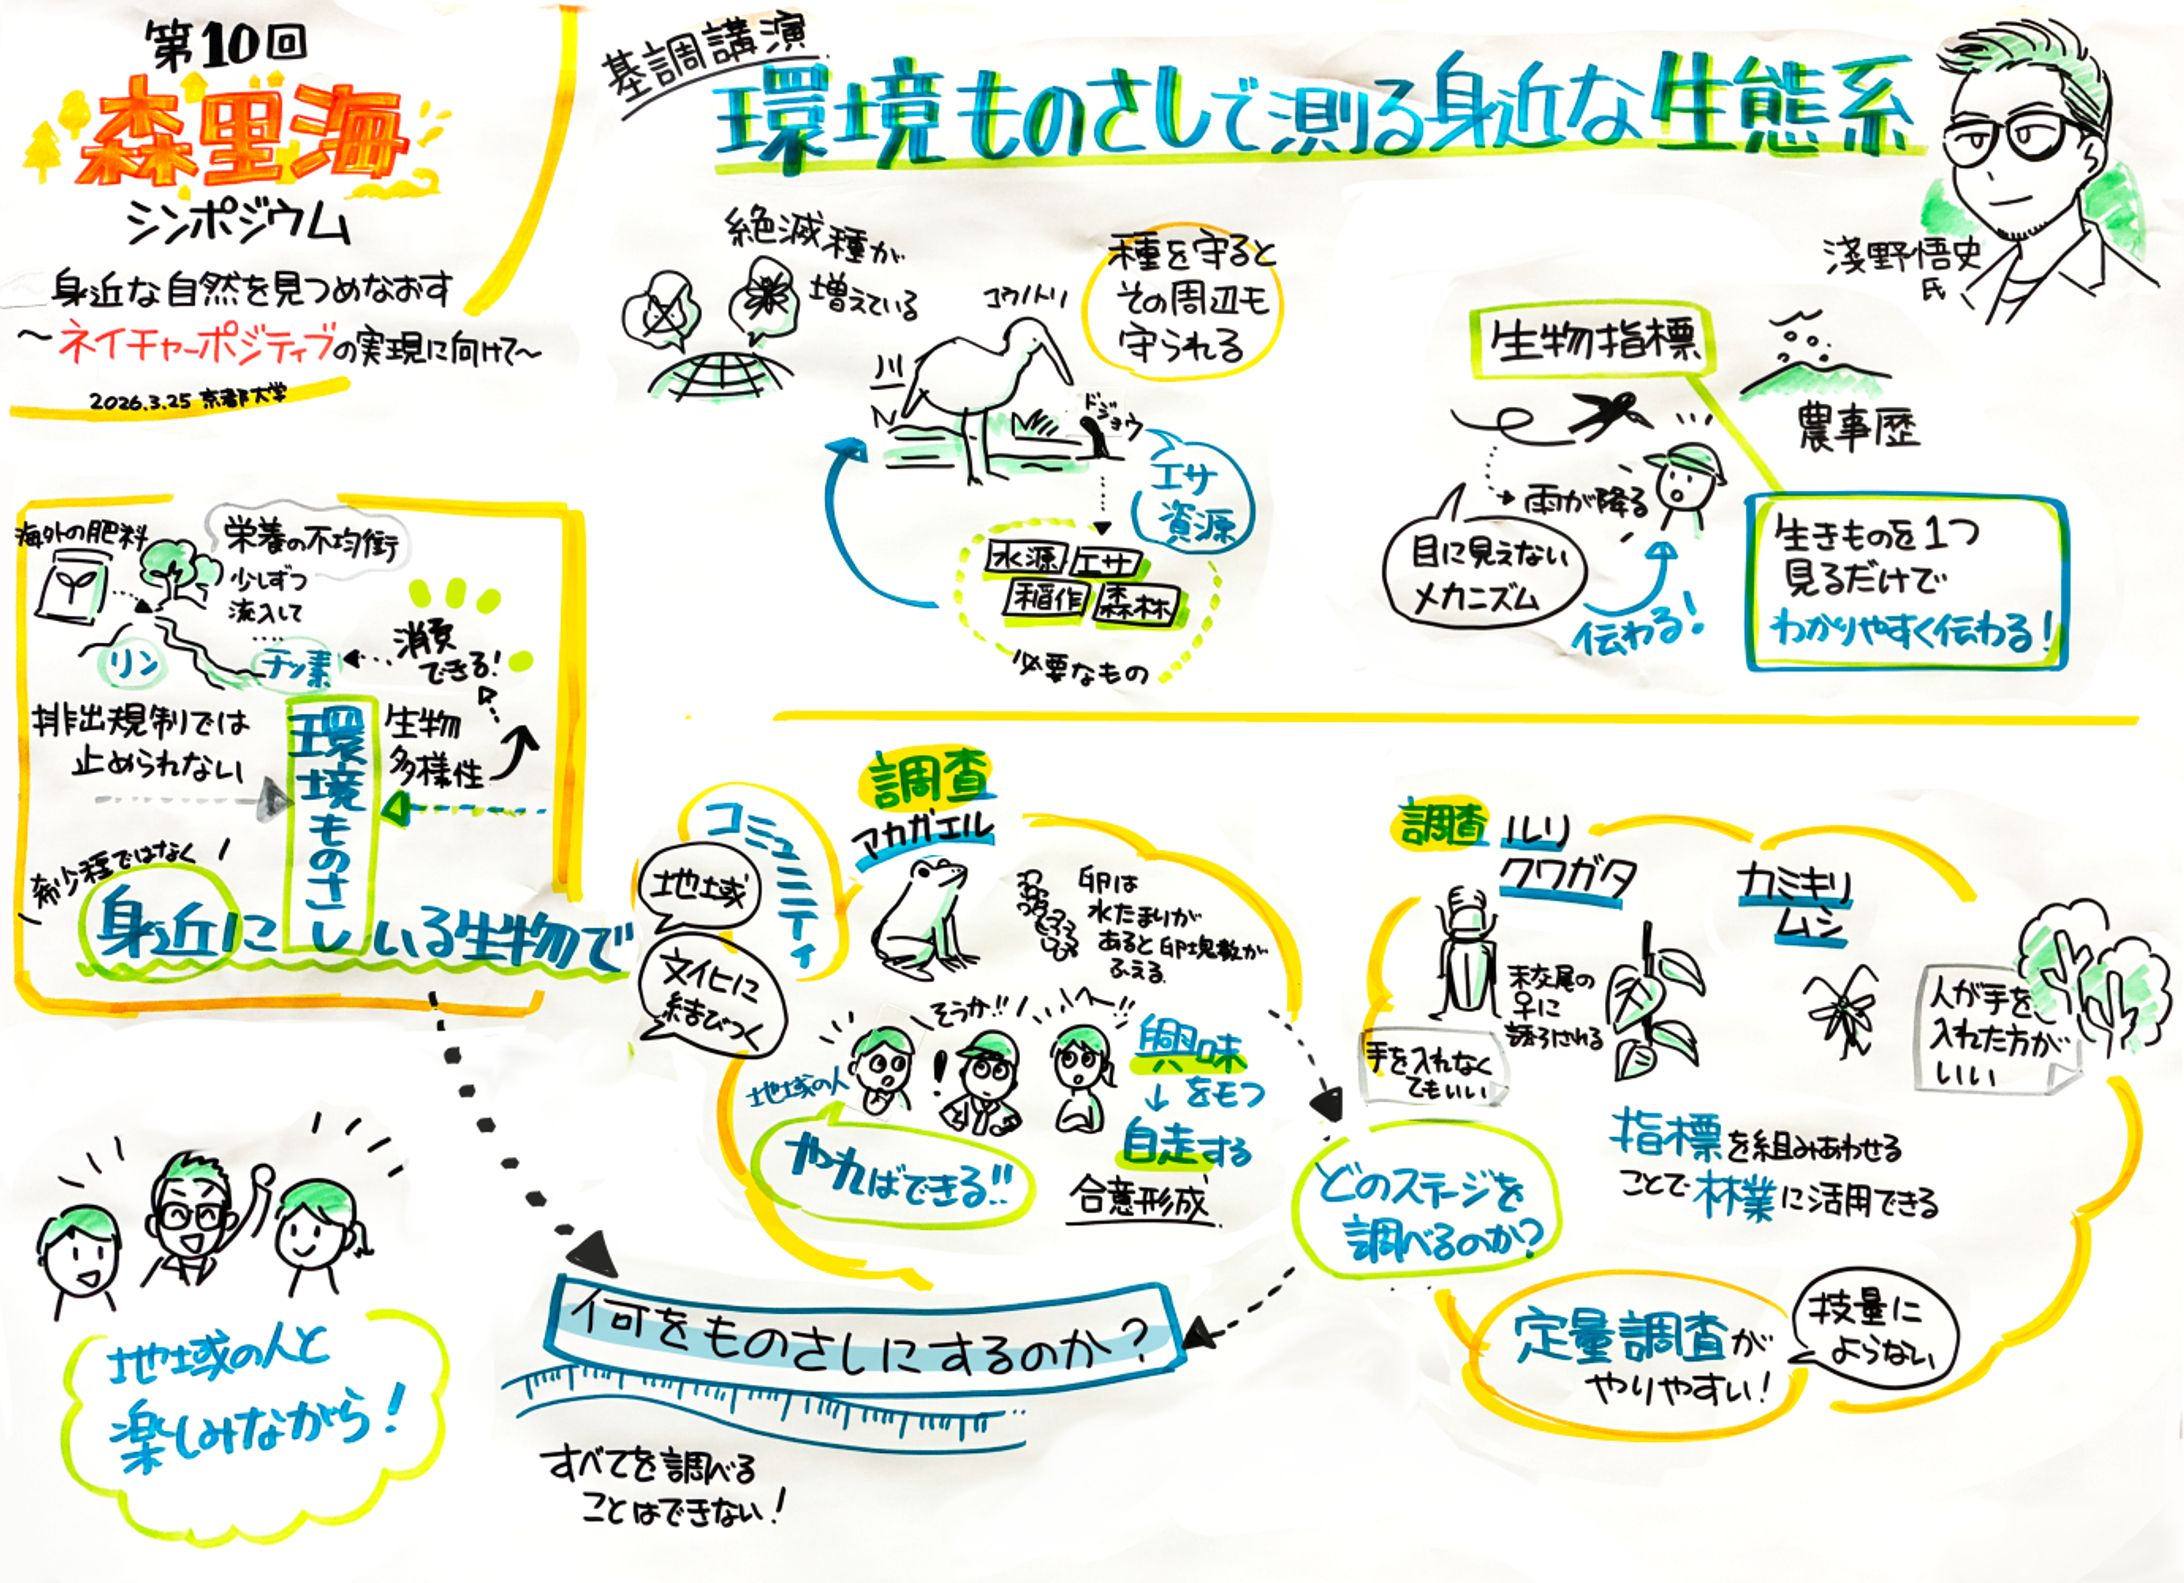 第10回
森里海
シンポジウム
身近な自然を見つめなおす
〜ネイチャーポジティブの実現に向けて〜
2026.3.25 京都大学
基調講演
環境ものさしで測る身近な生態系
淺野悟史
氏
絶滅種が
増えている
コウノトリ
種を守ると
その周辺も
守られる
ドジョウ
エサ
資源
水源
エサ
稲作
森林
必要なもの
生物指標
農事歴
雨が降る
目に見えない
メカニズム
伝わる!
生きものを1つ
見るだけで
わかりやすく伝わる!
海外の肥料
栄養の不均衡
少しずつ
流入して
....
リン
チッ素
消費
できる!
排出規制では
止められない
環境ものさし
生物
多様性
希少種ではなく
身近にいる生物で
コミュニティ
地域
文化に
結びつく
調査
アカガエル
卵は
水たまりが
あると卵塊数が
ふえる
そうか!!
へー!!
地域の人
やればできる!!
興味
↓をもつ
自走する
合意形成
調査
ルリ
クワガタ
カミキリ
ムシ
未交尾の
♀に
誘引される
手を入れなく
てもいい
人が手を
入れた方が
いい
指標を組みあわせる
ことで林業に活用できる
どのステージを
調べるのか?
定量調査が
やりやすい!
技量に
よらない
何をものさしにするのか?
すべてを調べる
ことはできない!
地域の人と
楽しみながら!